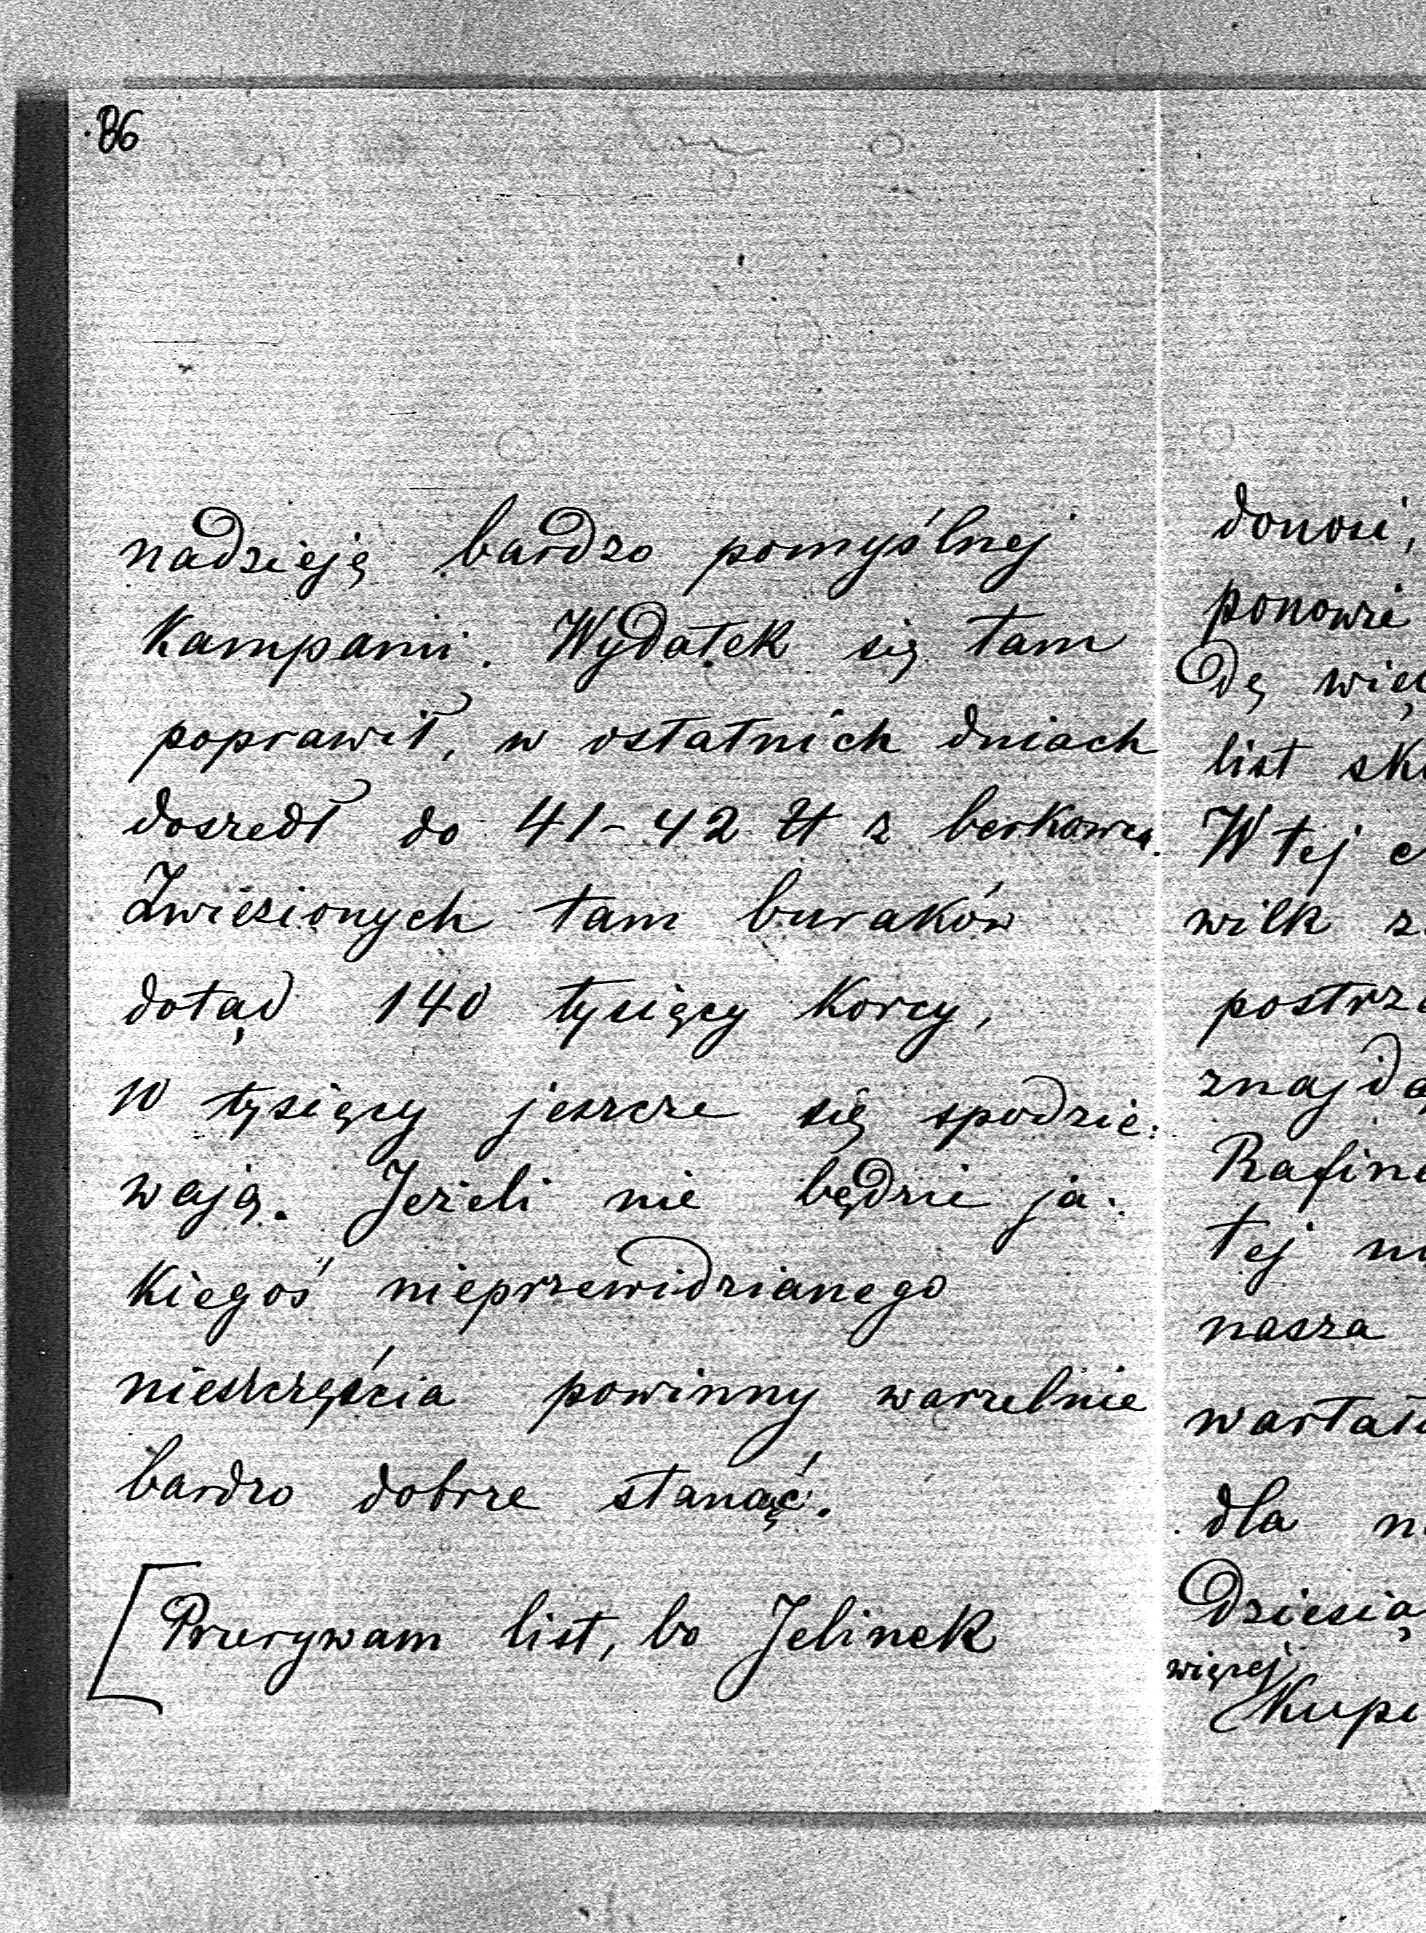 86
nadzieję bardzo pomyślnej
Kampanii. Wydatek się tam
poprawił, w ostatnich dniach
doszedł do 41-42 ℔ z berkowca.
Zwiezionych tam buraków
dotąd 140 tysięcy Korcy,
10 tysięcy jeszcze się spodzie-
wają. Jeżeli nie będzie ja-
Kiegoś nieprzewidzianego
nieszczęścia powinny warzelnie
bardzo dobrze stanąć.
[Przerywam list, bo Jelinek
donosi,
ponowi
dę więc
list sk
W tej c
wilk z
postrz
znajd
Rafine
tej
nasza
wartał
dla n
Dziesią
więcej
Kupi